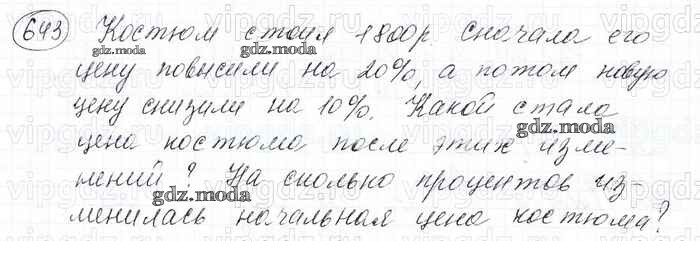 643 Костюм стоил 1800р сначала его
цену повысили на 20%, а потом новую
цену снизили на 10%. Какой стала
цена костюма после этих изме-
нений? На сколько процентов из-
менилась начальная цена костюма?
gdz.moda
gdz.moda
gdz.moda
gdz.moda
gdz.moda